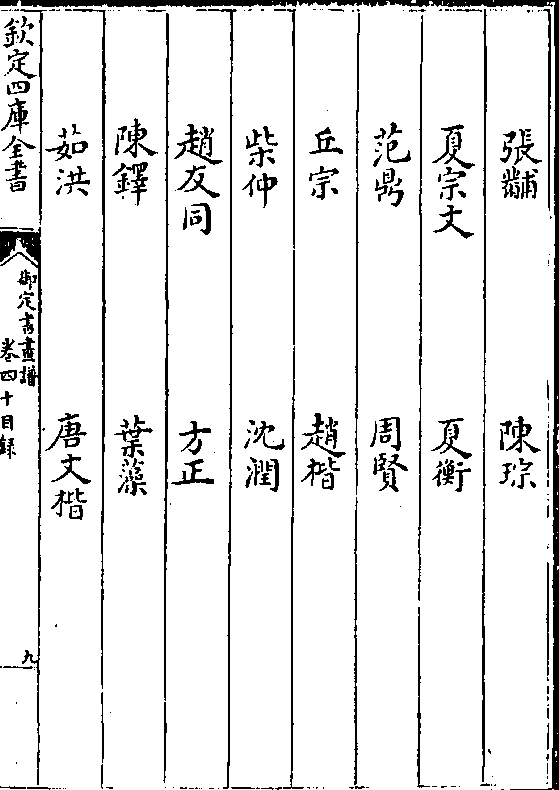 張黼　陳琮
夏宗文　夏衡
范鼎　周賢
丘宗　趙楷
柴仲　沈潤
趙友同　方正
陳鐸　葉藻
茹洪　唐文楷
欽定四庫全書
御定書畫譜
卷四十目録
九